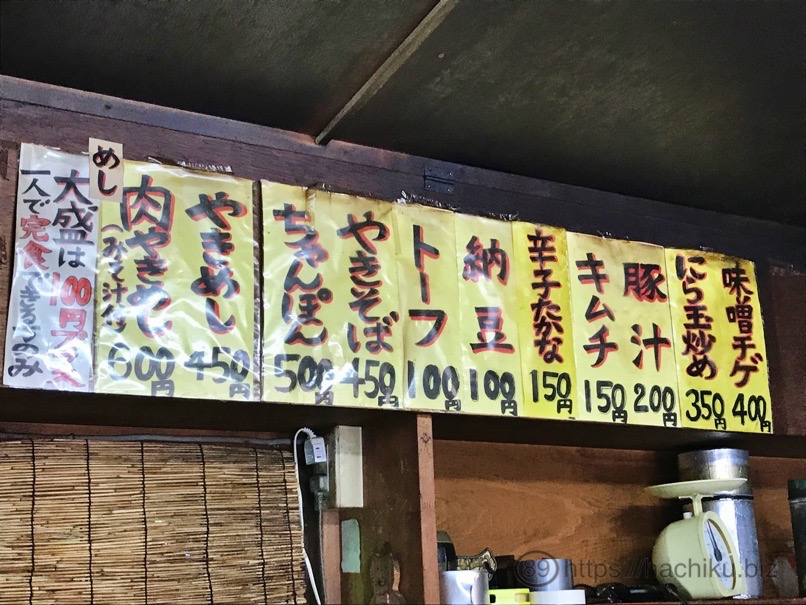 味噌チゲ
400円
にら玉炒め
350円
豚汁
200円
キムチ
150円
辛子たかな
150円
納豆
100円
トーフ
100円
やきそば
450円
ちゃんぽん
500円
やきめし
450円
肉やきめし
(みそ汁付)
600円
めし
大盛は100円プラス
一人で完食できる方のみ
89 https://hachiku.biz